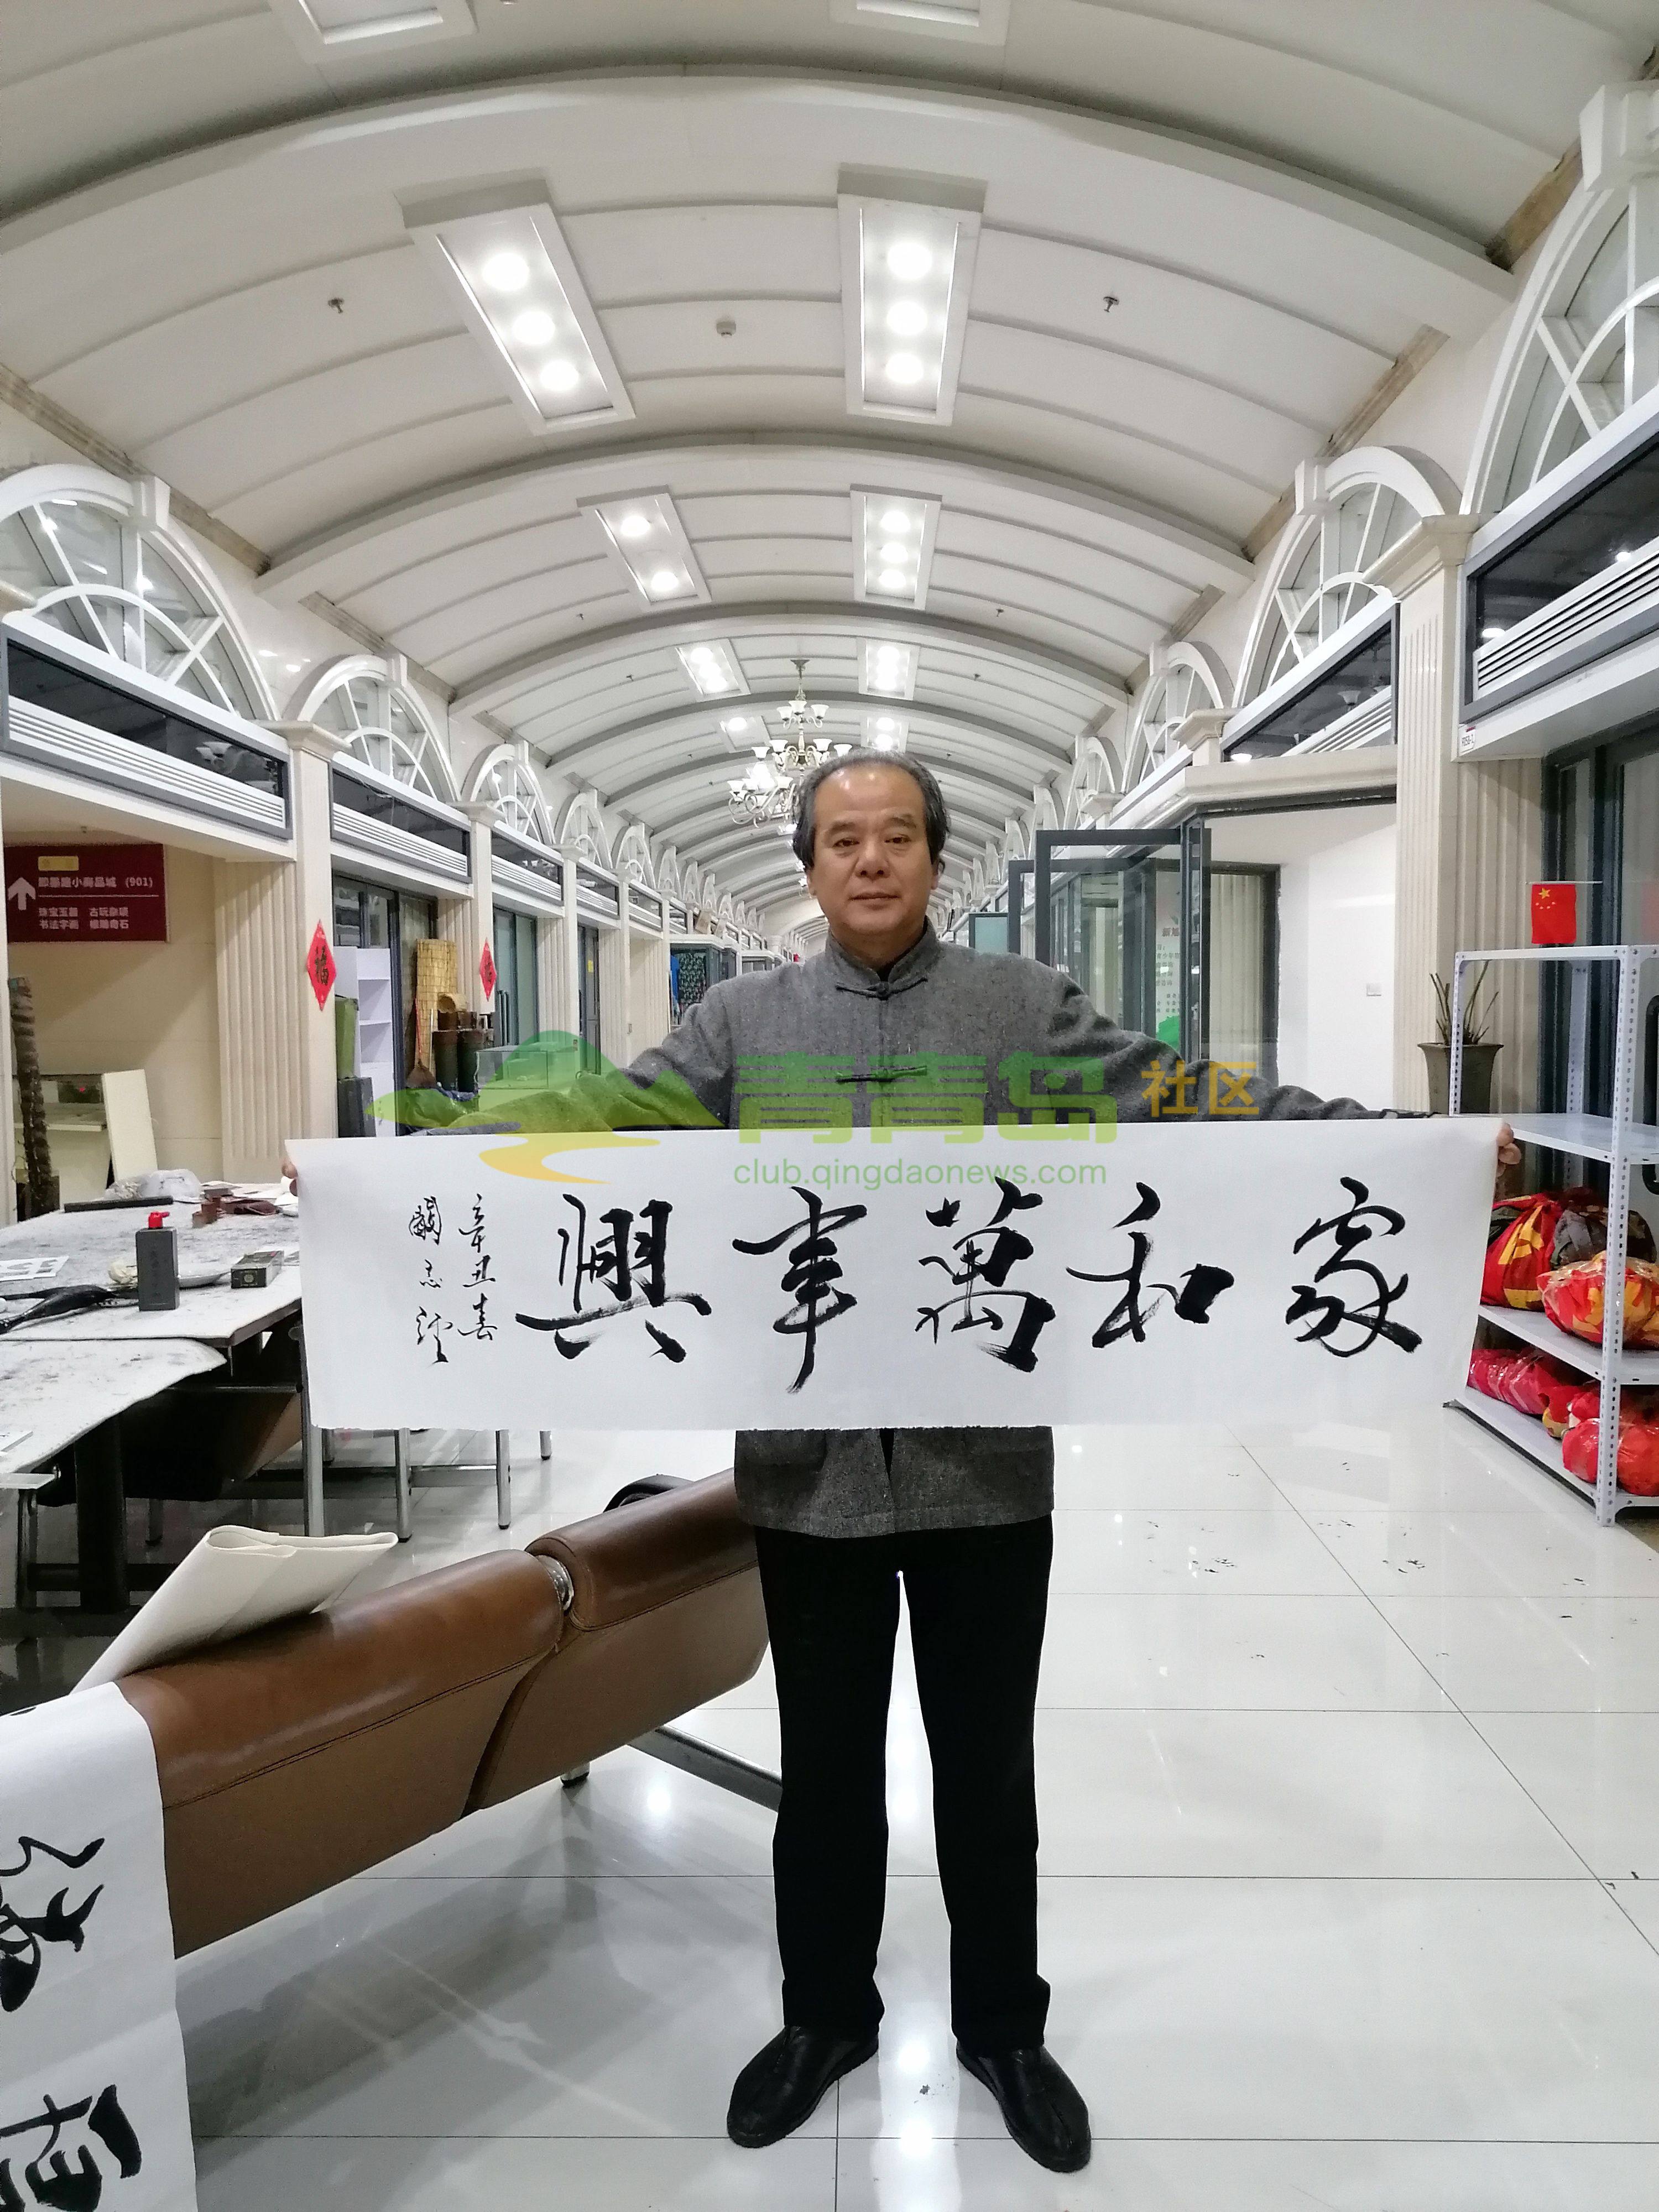 即墨路小商品城 (901)
珠宝玉器 古玩杂项
书法字画 根雕奇石
福
青青岛 社区
club.qingdaonews.com
家和萬事興
辛丑春